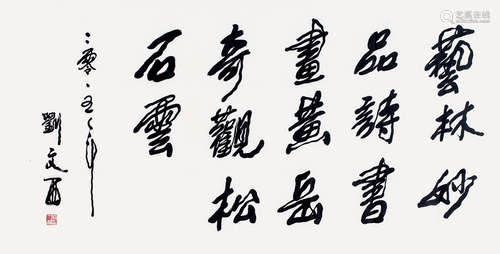 藝林妙
品詩書
畫黃岳
奇觀松
石雲
二零一五年
劉文西
艺狐在线